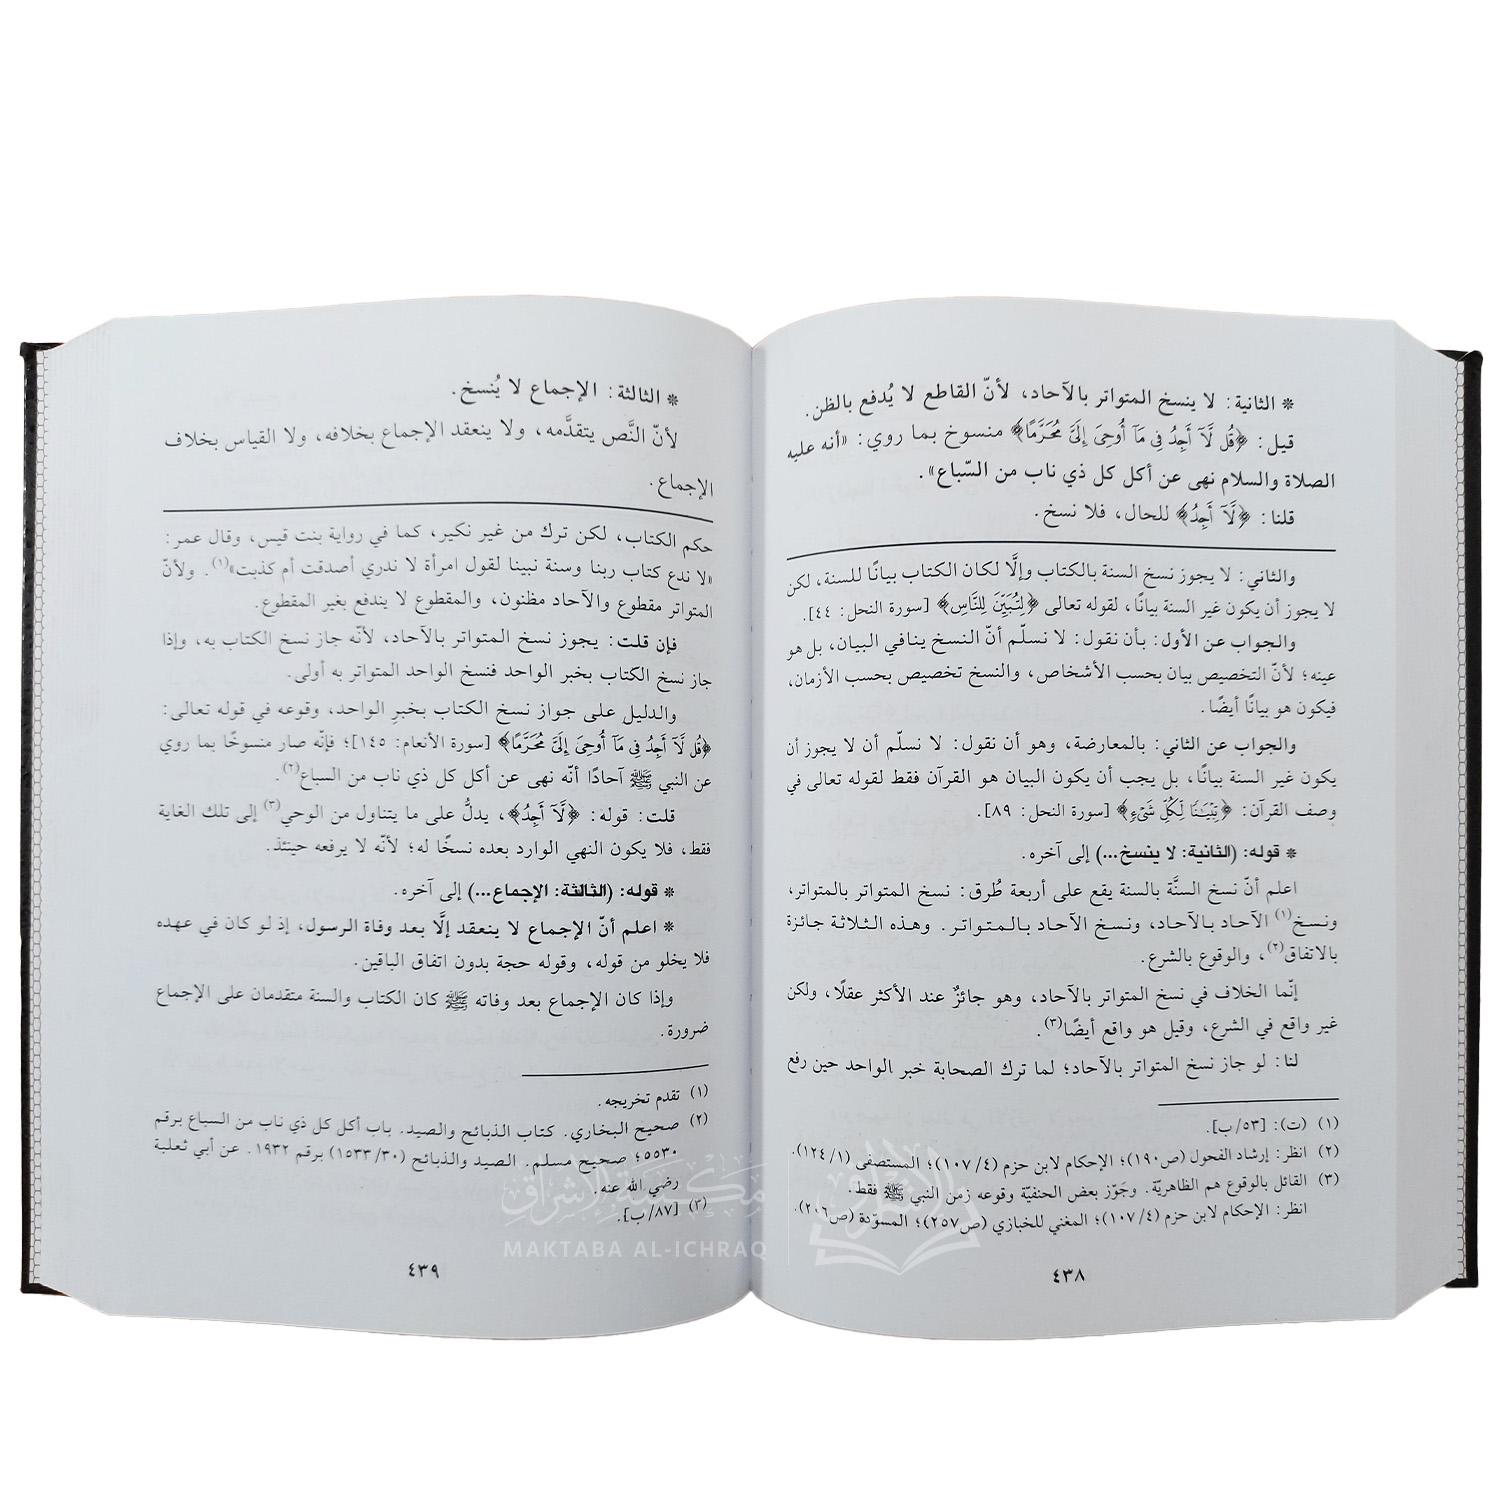 * الثانية: لا ينسخ المتواتر بالآحاد، لأنّ القاطع لا يُدفع بالظن.
قيل: ﴿قُل لَّآ أَجِدُ فِى مَآ أُوحِىَ إِلَىَّ مُحَرَّمًا﴾ منسوخ بما روي: «أنه عليه
الصلاة والسلام نهى عن أكل كل ذي ناب من السّباع».
قلنا: ﴿لَّآ أَجِدُ﴾ للحال، فلا نسخ.
والثاني: لا يجوز نسخ السنة بالكتاب وإلَّا لكان الكتاب بيانًا للسنة، لكن
لا يجوز أن يكون غير السنة بيانًا، لقوله تعالى ﴿لِتُبَيِّنَ لِلنَّاسِ﴾ [سورة النحل: ٤٤].
والجواب عن الأول: بأن نقول: لا نسلّم أنّ النسخ ينافي البيان، بل هو
عينه؛ لأنّ التخصيص بيان بحسب الأشخاص، والنسخ تخصيص بحسب الأزمان،
فيكون هو بيانًا أيضًا.
والجواب عن الثاني: بالمعارضة، وهو أن نقول: لا نسلّم أن لا يجوز أن
يكون غير السنة بيانًا، بل يجب أن يكون البيان هو القرآن فقط لقوله تعالى في
وصف القرآن: ﴿تِبْيَـٰنًا لِّكُلِّ شَىْءٍ﴾ [سورة النحل: ٨٩].
* قوله: (الثانية: لا ينسخ...) إلى آخره.
اعلم أنّ نسخ السنَّة بالسنة يقع على أربعة طُرق: نسخ المتواتر بالمتواتر،
ونسخ(١) الآحاد بالآحاد، ونسخ الآحاد بالمتواتر. وهذه الثلاثة جائزة
بالاتفاق(٢)، والوقوع بالشرع.
إنّما الخلاف في نسخ المتواتر بالآحاد، وهو جائزٌ عند الأكثر عقلًا، ولكن
غير واقع في الشرع، وقيل هو واقع أيضًا(٣).
لنا: لو جاز نسخ المتواتر بالآحاد؛ لما ترك الصحابة خبر الواحد حين رفع
(١) (ت): [٥٣/ب].
(٢) انظر: إرشاد الفحول (ص١٩٠)؛ الإحكام لابن حزم (٤/١٠٧)؛ المستصفى (١/١٢٤).
(٣) القائل بالوقوع هم الظاهريّة. وجَوّز بعض الحنفيّة وقوعه زمن النبي ﷺ فقط.
انظر: الإحكام لابن حزم (٤/١٠٧)؛ المغني للخبازي (ص٢٥٧)؛ المسوّدة (ص٢٠٦).
٤٣٨
* الثالثة: الإجماع لا يُنسخ.
لأنّ النَّص يتقدَّمه، ولا ينعقد الإجماع بخلافه، ولا القياس بخلاف
الإجماع.
حكم الكتاب، لكن ترك من غير نكير، كما في رواية بنت قيس، وقال عمر:
«لا ندع كتاب ربنا وسنة نبينا لقول امرأة لا ندري أصدقت أم كذبت»(١). ولأنّ
المتواتر مقطوع والآحاد مظنون، والمقطوع لا يندفع بغير المقطوع.
فإن قلت: يجوز نسخ المتواتر بالآحاد، لأنّه جاز نسخ الكتاب به، وإذا
جاز نسخ الكتاب بخبر الواحد فنسخ الواحد المتواتر به أولى.
والدليل على جواز نسخ الكتاب بخبرِ الواحد، وقوعه في قوله تعالى:
﴿قُل لَّآ أَجِدُ فِى مَآ أُوحِىَ إِلَىَّ مُحَرَّمًا﴾ [سورة الأنعام: ١٤٥]؛ فإنّه صار منسوخًا بما روي
عن النبي ﷺ آحادًا أنّه نهى عن أكل كل ذي ناب من السباع(٢).
قلت: قوله: ﴿لَّآ أَجِدُ﴾، يدلُّ على ما يتناول من الوحي(٣) إلى تلك الغاية
فقط، فلا يكون النهي الوارد بعده نسخًا له؛ لأنّه لا يرفعه حينئذ.
* قوله: (الثالثة: الإجماع...) إلى آخره.
* اعلم أنّ الإجماع لا ينعقد إلَّا بعد وفاة الرسول، إذ لو كان في عهده
فلا يخلو من قوله، وقوله حجة بدون اتفاق الباقين.
وإذا كان الإجماع بعد وفاته ﷺ كان الكتاب والسنة متقدمان على الإجماع
ضرورة.
(١) تقدم تخريجه.
(٢) صحيح البخاري. كتاب الذبائح والصيد. باب أكل كل ذي ناب من السباع برقم
٥٥٣٠؛ صحيح مسلم. الصيد والذبائح (١٥٣٣/٣٠) برقم ١٩٣٢. عن أبي ثعلبة
رضي الله عنه.
(٣) [٨٧/ب].
٤٣٩
مكتبة الإشراق
MAKTABA AL-ICHRAQ